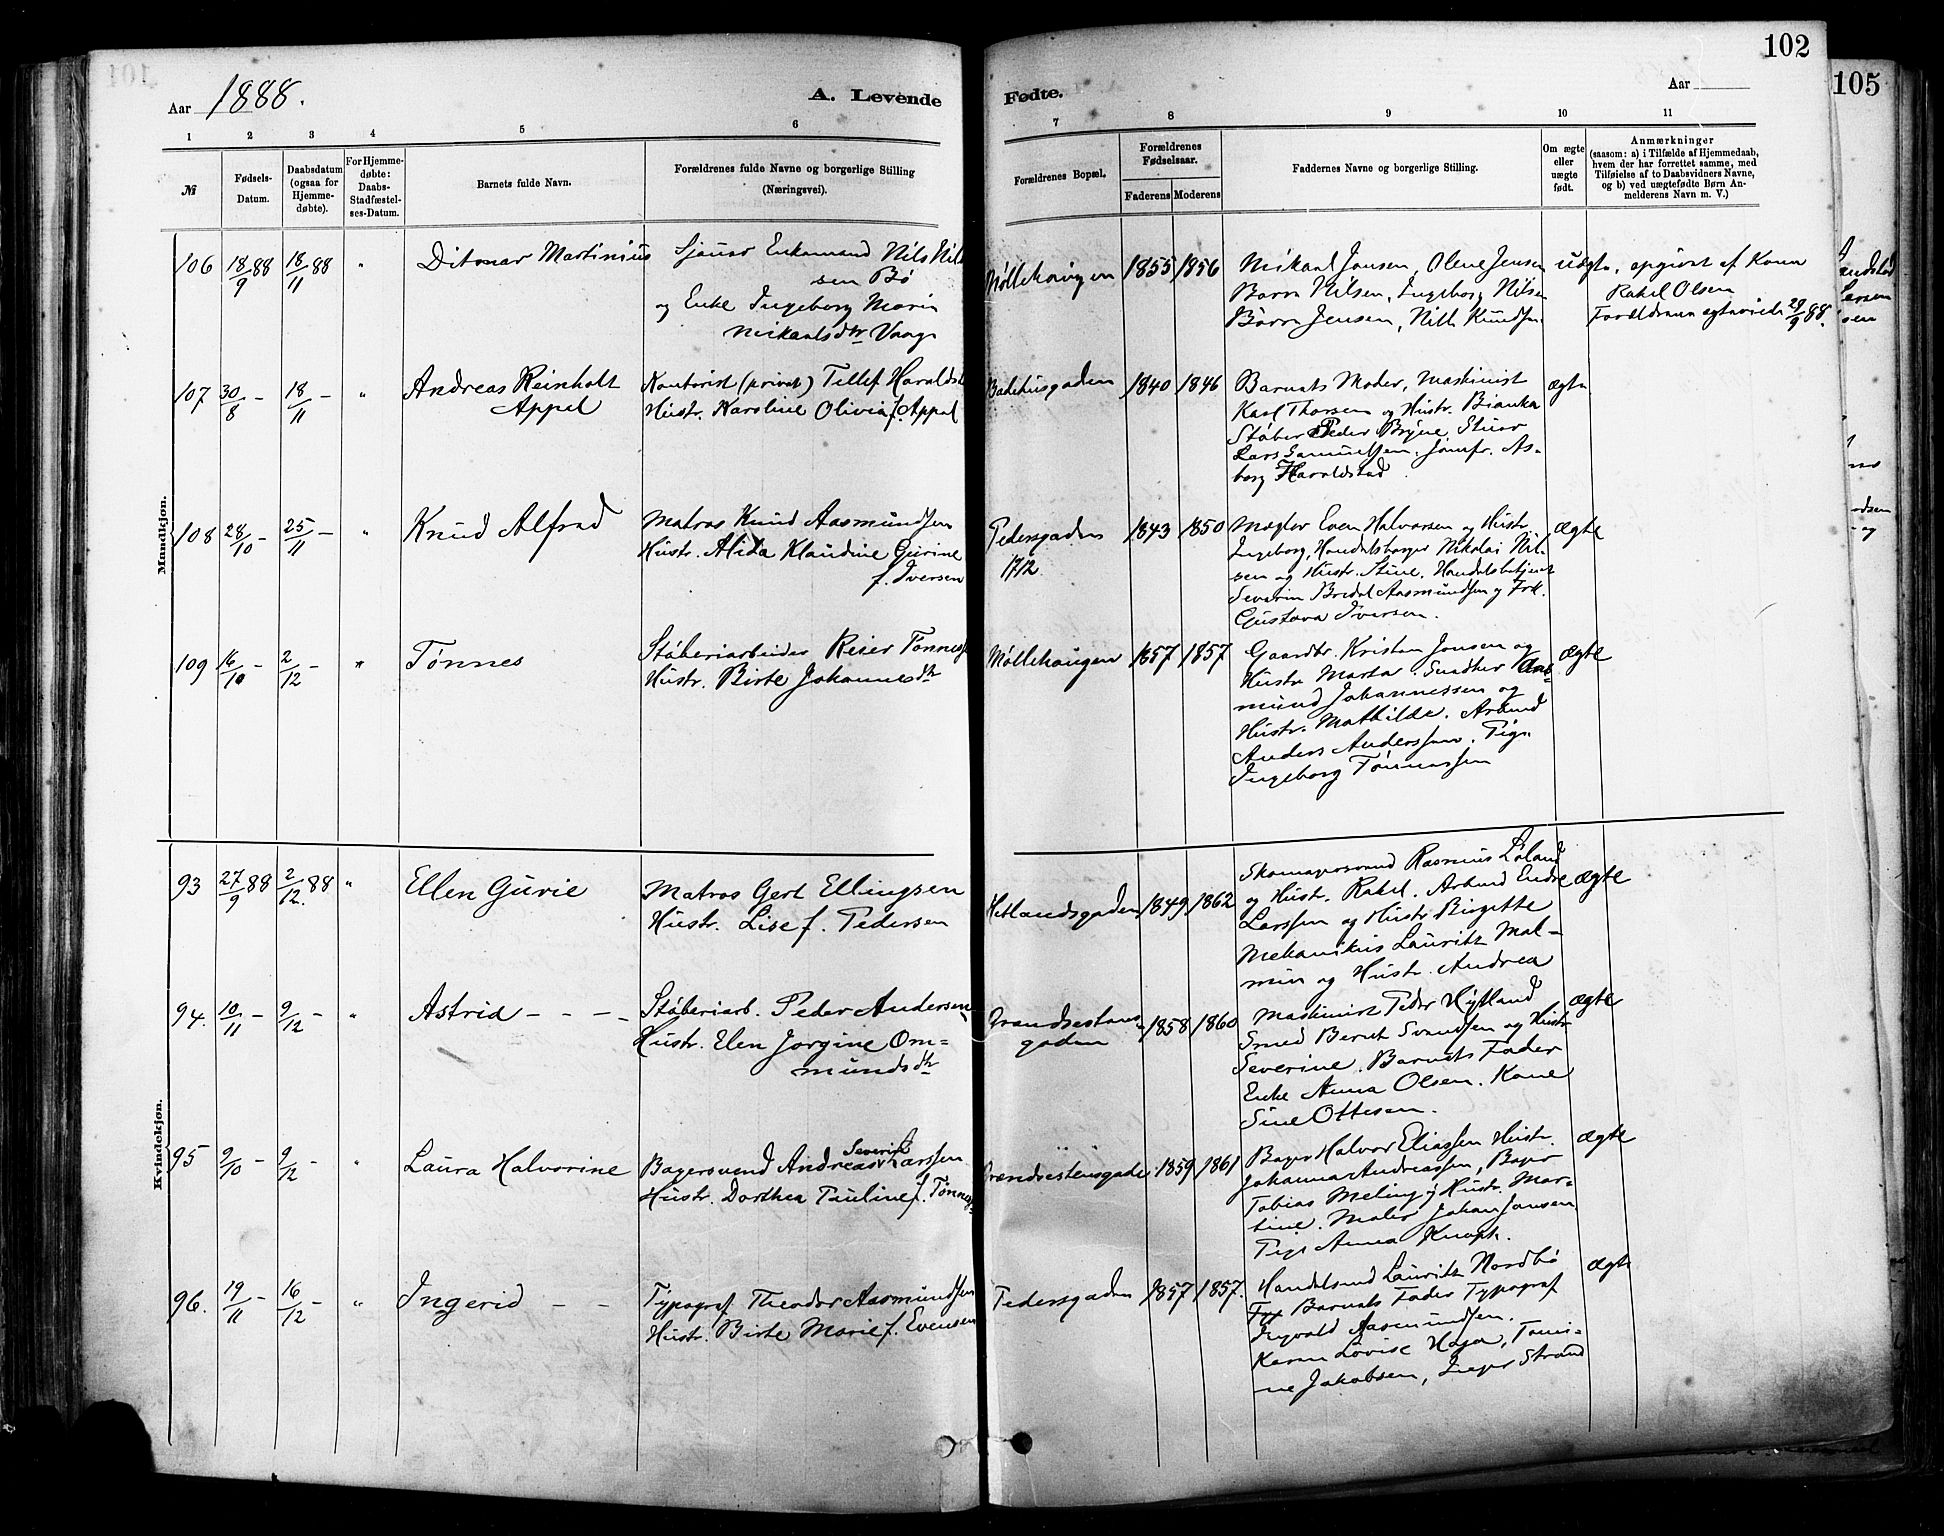 102
105
Aar 1888.
A. Levende
Fødte.
Aar
1 2 3 4 5 6 7 8 9 10 11
№
Fødsels-
Datum.
Daabsdatum
(ogsaa for
Hjemme-
døbte).
For Hjemme-
døbte:
Daabs-
Stadfæstel-
ses-Datum.
Barnets fulde Navn.
Forældrenes fulde Navne og borgerlige Stilling
(Næringsvei).
Forældrenes Bopæl.
Forældrenes
Fødselsaar.
Faderens Moderens
Faddernes Navne og borgerlige Stilling.
Om ægte
eller
uægte
født.
Anmærkninger
(saasom: a) i Tilfælde af Hjemmedaab,
hvem der har forrettet samme, med
Tilføielse af to Daabsvidners Navne,
og b) ved uægtefødte Børn An-
melderens Navn m. V.)
Mandkjøn.
106 18/9 88 18/11 88 " Ditmar Martinius
Sjauer Enkemand Nils Nil
sen Bø
og Enke Ingeborg Marie
Mikaelsdtr Vaage
Møllehaugen 1855 1856
Mikael Jansen, Olene Jensen
Baren Nilsen, Ingeborg Nilsen
Børre Jensen, Nils Knudsen
uægte, opgivet af Konen
Rakel Olsen
Forældrene ægteviede 29/9 88.
107 30/8 - 18/11 - " Andreas Reinholt
Appel
Kontorist (privat) Tellef Haraldst
Hustr. Karoline Olivia f. Appel
Badehusgaden 1840 1846
Barnets Moder, Maskinist
Karl Thorsen og Hustr. Bianka
Støber Peder Bryne, Stuer
Lars Samuelsen, Jomfr. As-
borg Haraldstad
ægte
108 28/10 - 25/11 - " Knud Alfred
Matros Knud Aasmundsen
Hustr. Alida Klaudine Gurine
f. Iversen
Pedersgaden 1843 1850
1712.
Mægler Even Halvorsen og Hustr
Ingeborg, Handelsborger Nikolai Nil-
sen og Hustr. Stine. Handelsbetjent
Severin Bredal Aasmundsen og Frk.
Gustava Iversen.
ægte
109 16/10 - 2/12 - " Tønnes
Støberiarbeider Reier Tønness
Hustr. Birte Johannesdtr
Møllehaugen 1857 1857
Gaardbr. Kristen Jonsen og
Hustr Marta. Snedker Aas-
mund Johannessen og
Hustr. Mathilde. Arbmd
Anders Anderssen. Pige
Ingeborg Tønnessen
ægte
Kvindekjøn.
93 27/9 88 2/12. 88 " Ellen Gurie
Matros Gert Ellingsen
Hustr. Lise f. Pedersen
Hetlandsgaden 1849 1862
Skomagersvend Rasmus Løland
og Hustr. Rakel. Arbmd Endre
Larssen og Hustr Birgitte
Mekanikus Lauritz Mal-
min og Hustr. Andrea
ægte
94. 10/11 - 9/12 - " Astrid - - -
Støberiarb. Peder Andersen
Hustr. Elen Jorgine Om-
mundsdtr
gaden 1858 1860
Maskinist Peder Hytland
Smed Bernt Svendsen og Hustr
Severine. Barnets Fader
Enke Anna Olsen. Kone
Sine Ottesen.
ægte
95 9/10 - 9/12 - " Laura Halvorine
Bagersvend Andreas Severin Larssen
Hustr. Dorthea Pauline f. Tønnes
1859 1861
Bager Halvor Eliassen Hustr.
Johanna Andreassen, Bager
Tobias Meling og Hustr. Mar-
tine. Maler Johan Jansen
Pige Anna Knoph.
ægte
96. 19/11 - 16/12 - " Ingerid - -
Typograf Theodor Aasmundsen
Hustr. Birte Marie f. Evensen
Pedersgaden 1857 1857.
Handelsmd Lauritz Nordbø
Typ Barnets Fader Typograf
Ingvald Aasmundsen.
Karen Lovise Haga, Tomi-
ne Jakobsen, Inger Strand
ægte